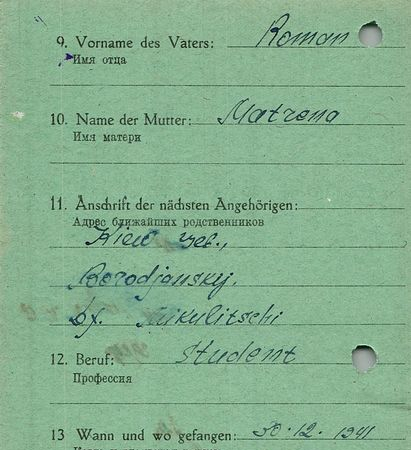 9. Vorname des Vaters: Roman
Имя отца
10. Name der Mutter: Matrena
Имя матери
11. Anschrift der nächsten Angehörigen:
Адрес ближайших родственников
Kiew Geb.,
Borodjansky,
Df. Mikulitschi
12. Beruf: Student
Профессия
13 Wann und wo gefangen: 30.12.1941